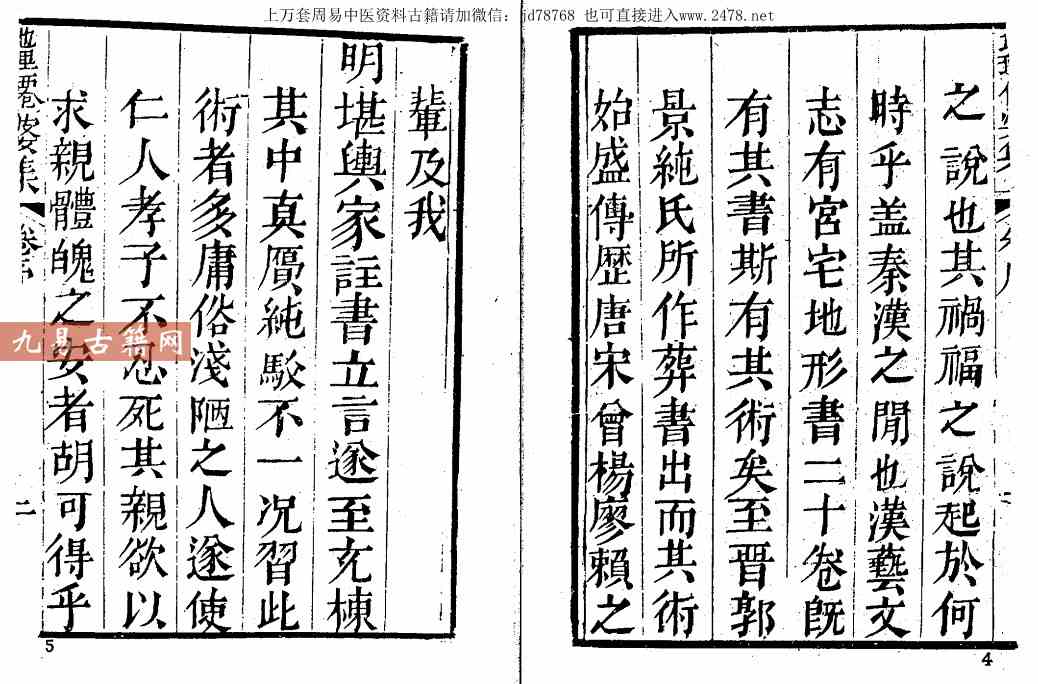 上万套周易中医资料古籍请加微信：jd78768 也可直接进入www.2478.net
之說也其禍福之說起於何
時乎盖秦漢之閒也漢藝文
志有宮宅地形書二十卷旣
有其書斯有其術矣至晋郭
景純氏所作葬書出而其術
始盛傳歷唐宋曾楊廖賴之
4
輩及我
明堪輿家註書立言遂至充棟
其中真贋純駁不一况習此
術者多庸俗淺陋之人遂使
仁人孝子不忍死其親欲以
求親體魄之安者胡可得乎
二
5
九易古籍网